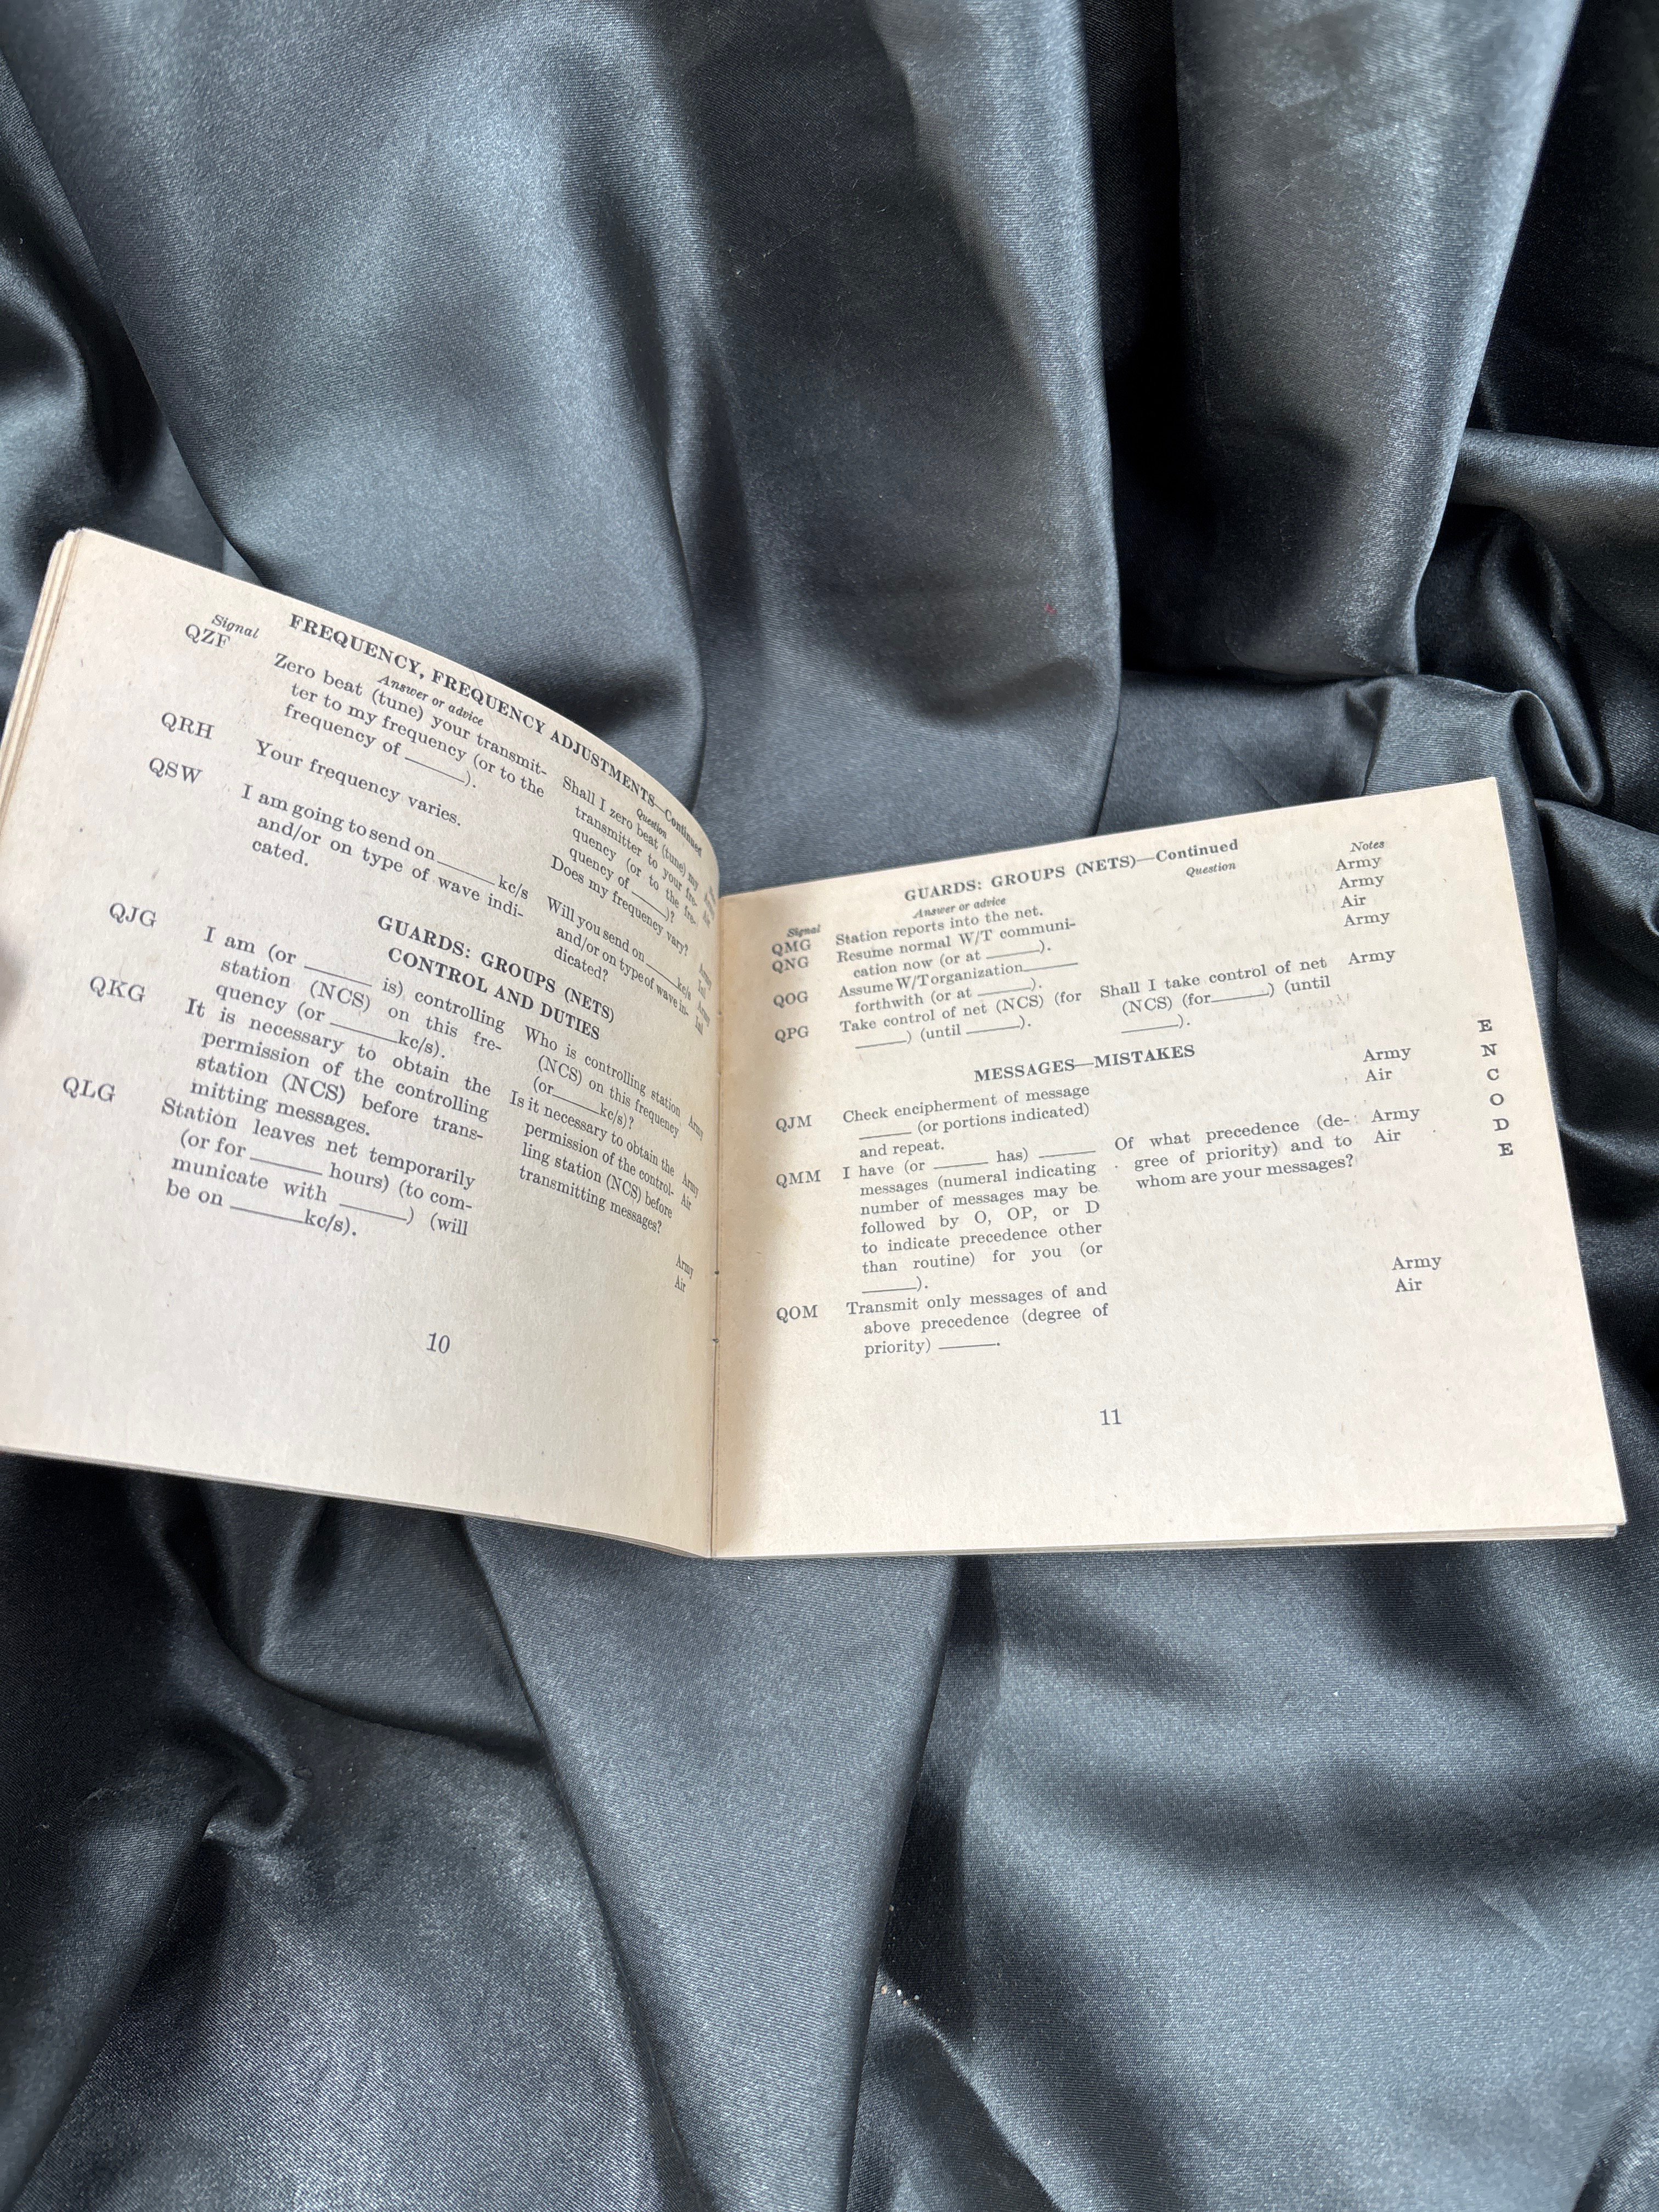 FREQUENCY, FREQUENCY ADJUSTMENTS—Continued
Signal
Answer or advice
Question
QZF
Zero beat (tune) your transmit-
ter to my frequency (or to the
frequency of ______).
Shall I zero beat (tune) my
transmitter to your fre-
quency (or to the fre-
quency of ______)?
QRH
Your frequency varies.
Does my frequency vary?
QSW
I am going to send on ______ kc/s
and/or on type of wave indi-
cated.
Will you send on ______ kc/s
and/or on type of wave in-
dicated?
GUARDS: GROUPS (NETS)
CONTROL AND DUTIES
QJG
I am (or ______ is) controlling
station (NCS) on this fre-
quency (or ______ kc/s).
Who is controlling station
(NCS) on this frequency
(or ______ kc/s)?
Army
QKG
It is necessary to obtain the
permission of the controlling
station (NCS) before trans-
mitting messages.
Is it necessary to obtain the
permission of the control-
ling station (NCS) before
transmitting messages?
Army
Air
QLG
Station leaves net temporarily
(or for ______ hours) (to com-
municate with ______) (will
be on ______ kc/s).
Army
Air
10
GUARDS: GROUPS (NETS)—Continued
Signal
Answer or advice
Question
Notes
QMG
Station reports into the net.
Army
QNG
Resume normal W/T communi-
cation now (or at ______).
Army
Air
QOG
Assume W/T organization ______
forthwith (or at ______).
Army
QPG
Take control of net (NCS) (for
______) (until ______).
Shall I take control of net
(NCS) (for ______) (until
______).
Army
MESSAGES—MISTAKES
QJM
Check encipherment of message
______ (or portions indicated)
and repeat.
Army
Air
QMM
I have (or ______ has) ______
messages (numeral indicating
number of messages may be
followed by O, OP, or D
to indicate precedence other
than routine) for you (or
______).
Of what precedence (de-
gree of priority) and to
whom are your messages?
Army
Air
QOM
Transmit only messages of and
above precedence (degree of
priority) ______.
Army
Air
E
N
C
O
D
E
11